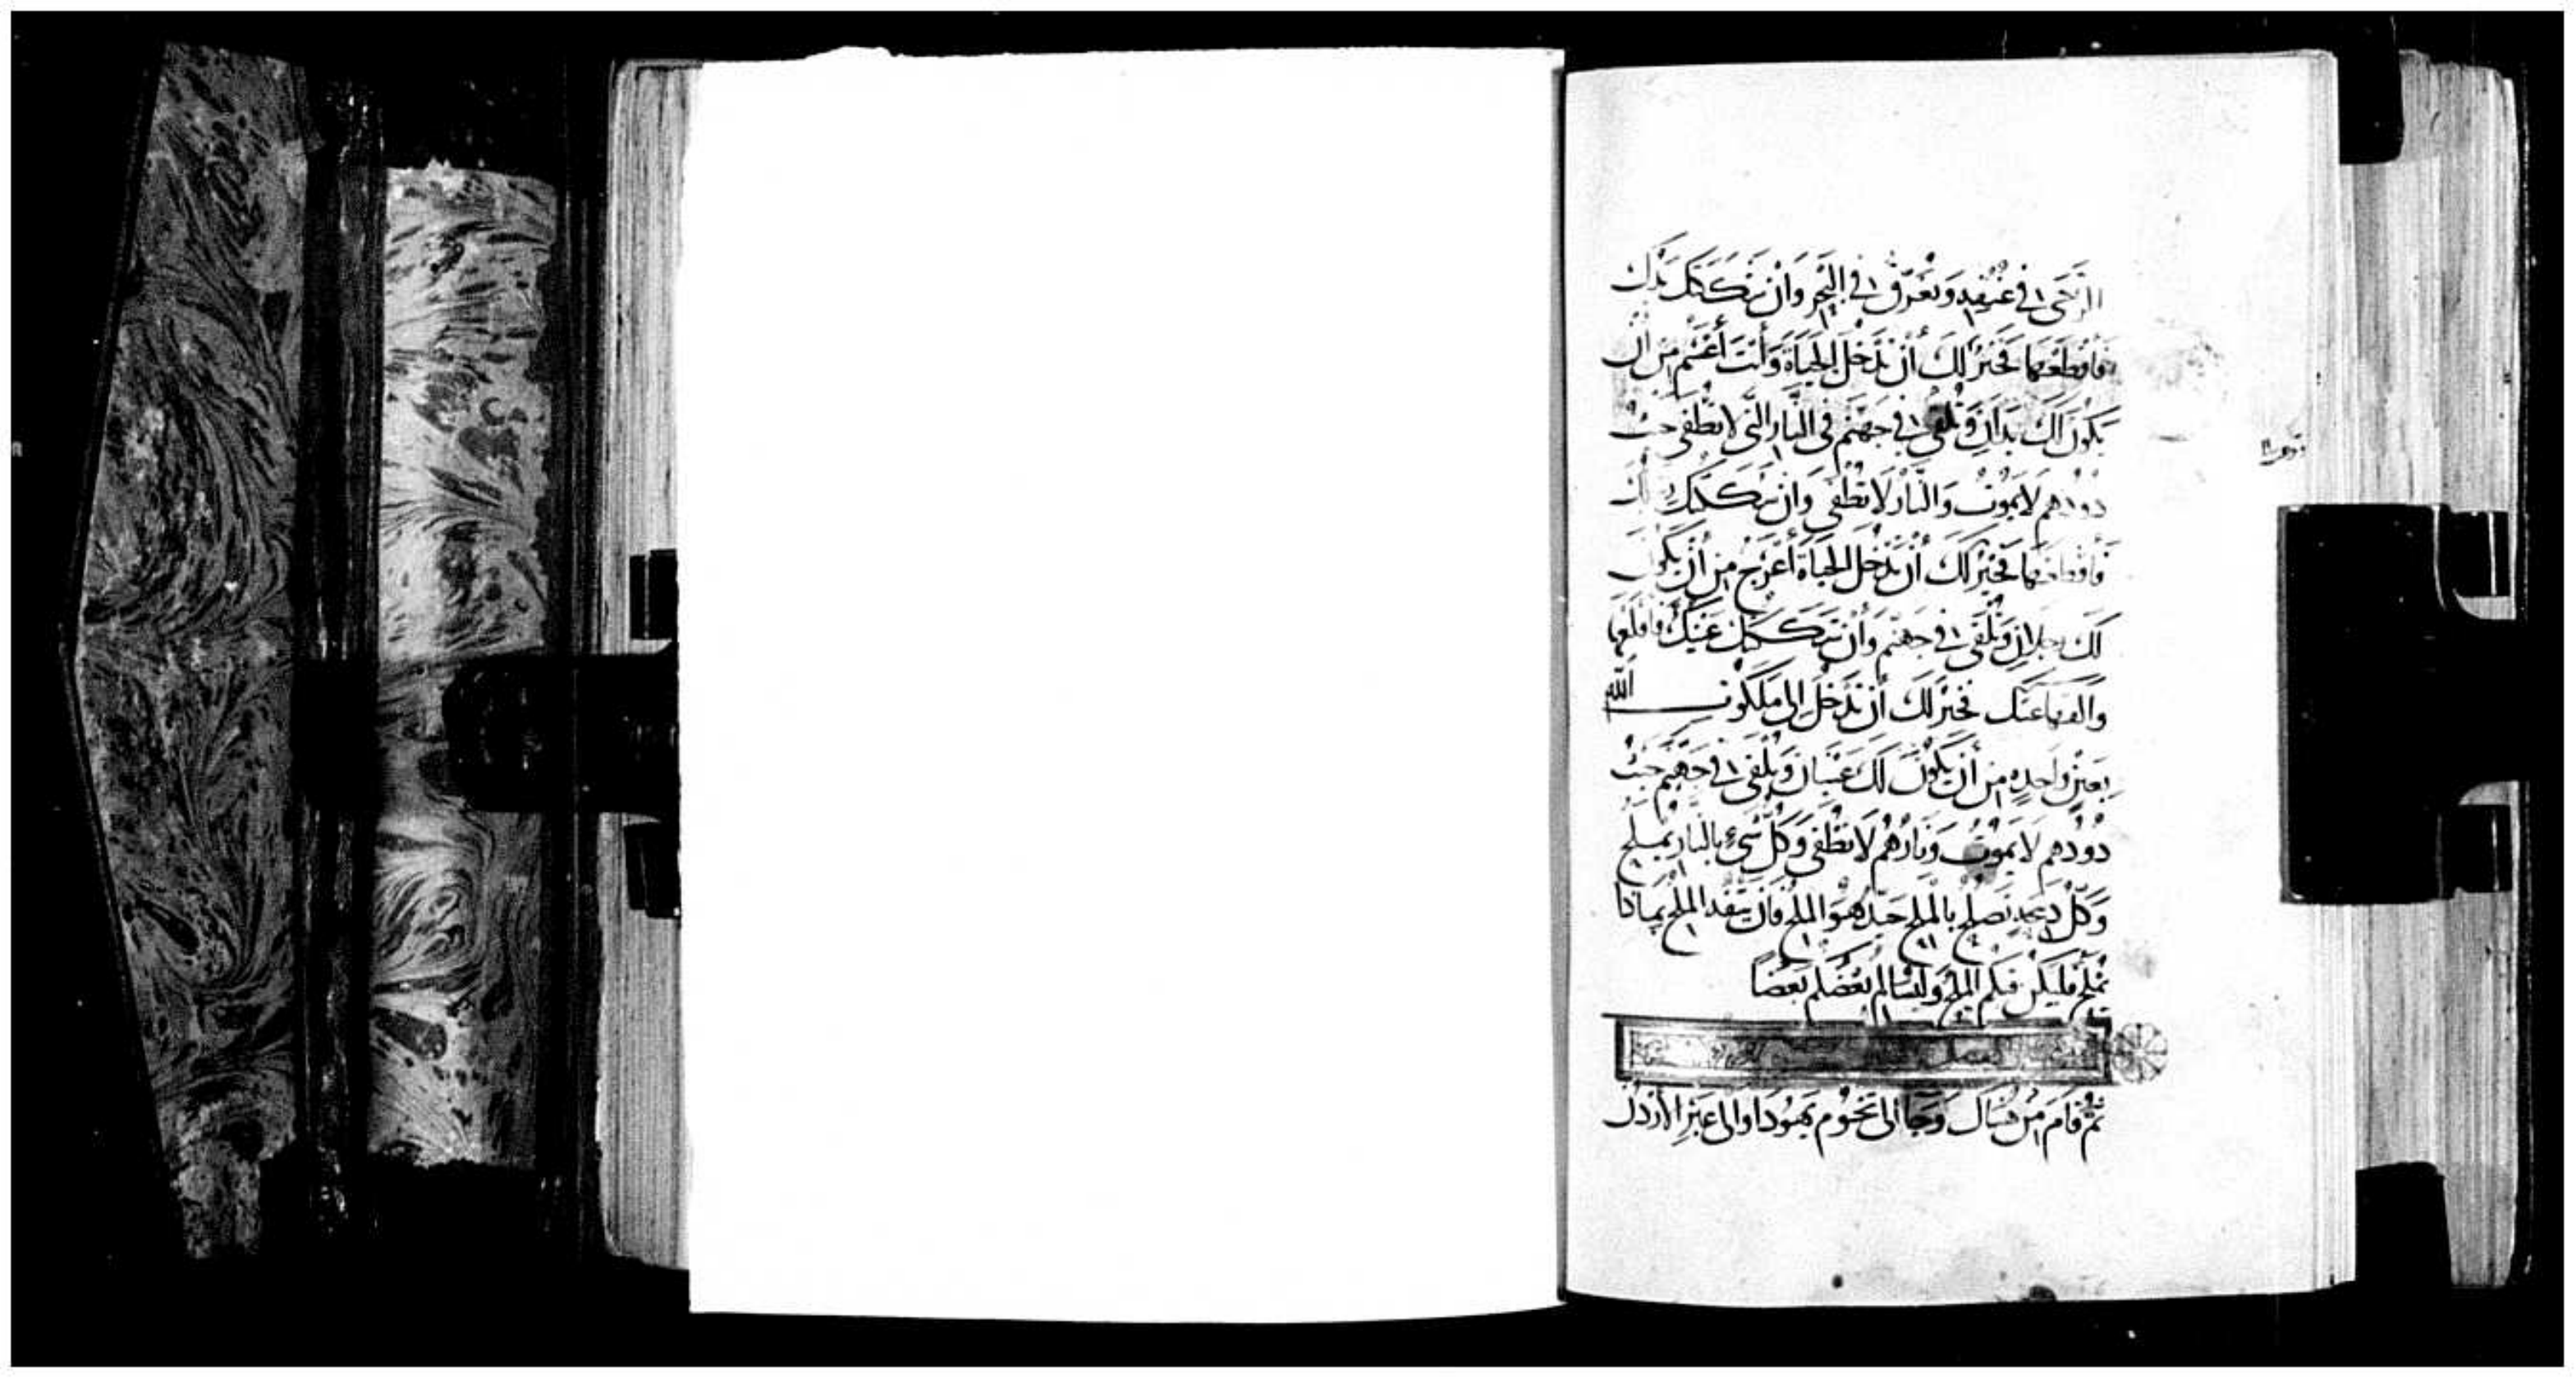 الرحى في عنقه ويغرق في البحر وان شككتك يدك
فاقطعها فخير لك أن تدخل الحياة وأنت أعسم من أن
يكون لك يدان وتلقى في جهنم في النار التي لا تطفى حيث
دودهم لا يموت والنار لا تطفى وان شككتك رجلك
فاقطعها فخير لك أن تدخل الحياة أعرج من أن يكون
لك رجلان وتلقى في جهنم وان شككتك عينك فاقلعها
والقها عنك فخير لك أن تدخل الى ملكوت الله
بعين واحدة من أن يكون لك عينان وتلقى في جهنم حيث
دودهم لا يموت ونارهم لا تطفى وكل شيء بالنار يملح
وكل ذبيحة تصلح بالملح جيد هو الملح فان يتفه الملح بماذا
يملح فليكن فيكم الملح وليسالم بعضكم بعضا
ثم قام من هناك وجا الى تخوم يهودا والى عبر الاردن